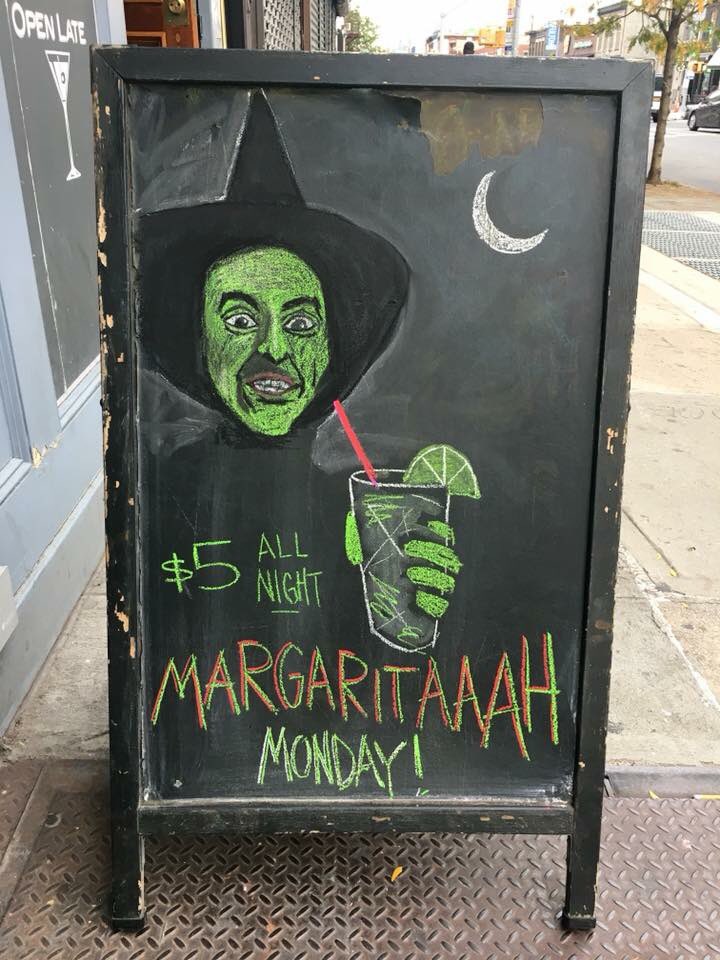 OPEN LATE
$5 ALL
NIGHT
MARGARITAAAH
MONDAY!